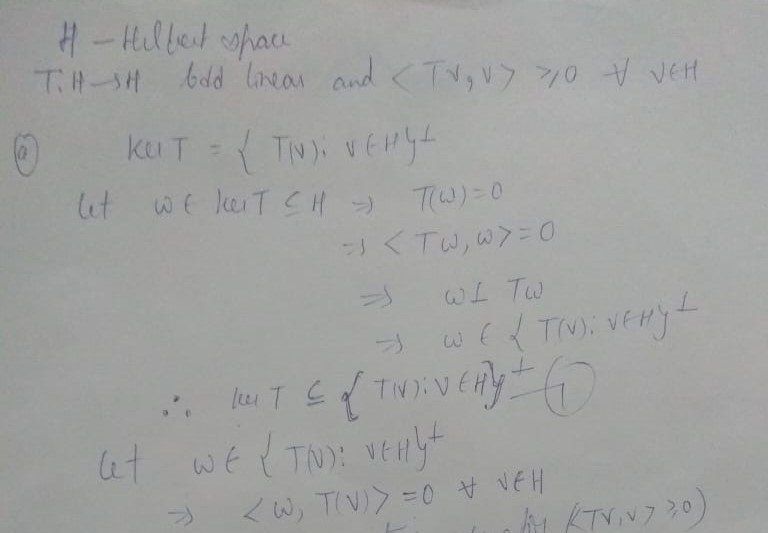 H - Hilbert space
T: H → H bdd linear and < Tv, v > ≥ 0 ∀ v ∈ H
(a) ker T = { T(v): v ∈ H }⊥
Let w ∈ ker T ⊆ H ⇒ T(w) = 0
⇒ < Tw, w > = 0
⇒ w ⊥ Tw
⇒ w ∈ { T(v): v ∈ H }⊥
∴ ker T ⊆ { T(v): v ∈ H }⊥ — (1)
Let w ∈ { T(v): v ∈ H }⊥
⇒ < w, T(v) > = 0 ∀ v ∈ H
(< Tv, v > ≥ 0)